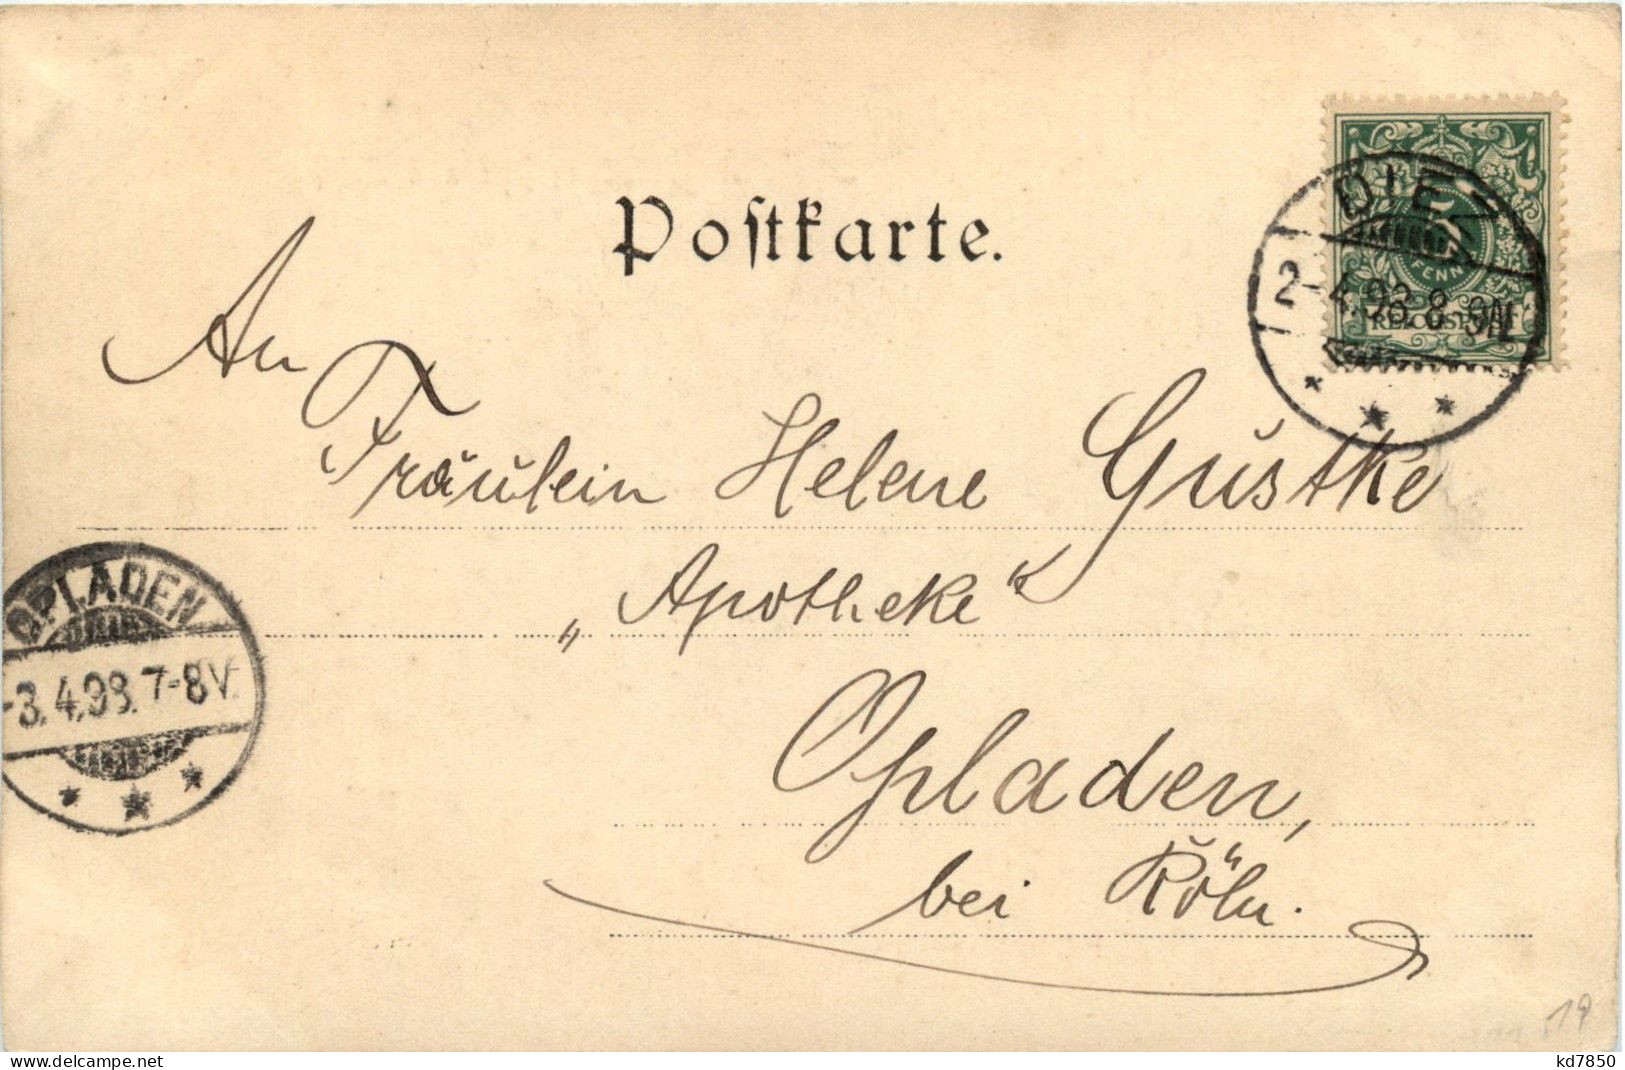 Postkarte.
DIEZ
5
PFENNIG
2-4.98.8-9N.
REICHSPOST
An
Fräulein Helene Gustke
„Apotheke“
Opladen,
bei Köln.
OPLADEN
-3.4.98.7-8V.
19
oldthing.de
kd7850